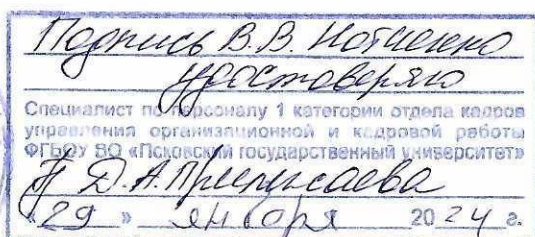 Подпись В.В.
удостоверяю
Специалист по персоналу 1 категории отдела кадров
управления организационной и кадровой работы
ФГБОУ ВО «Псковский государственный университет»
Д.А.
«29» января 2024 г.